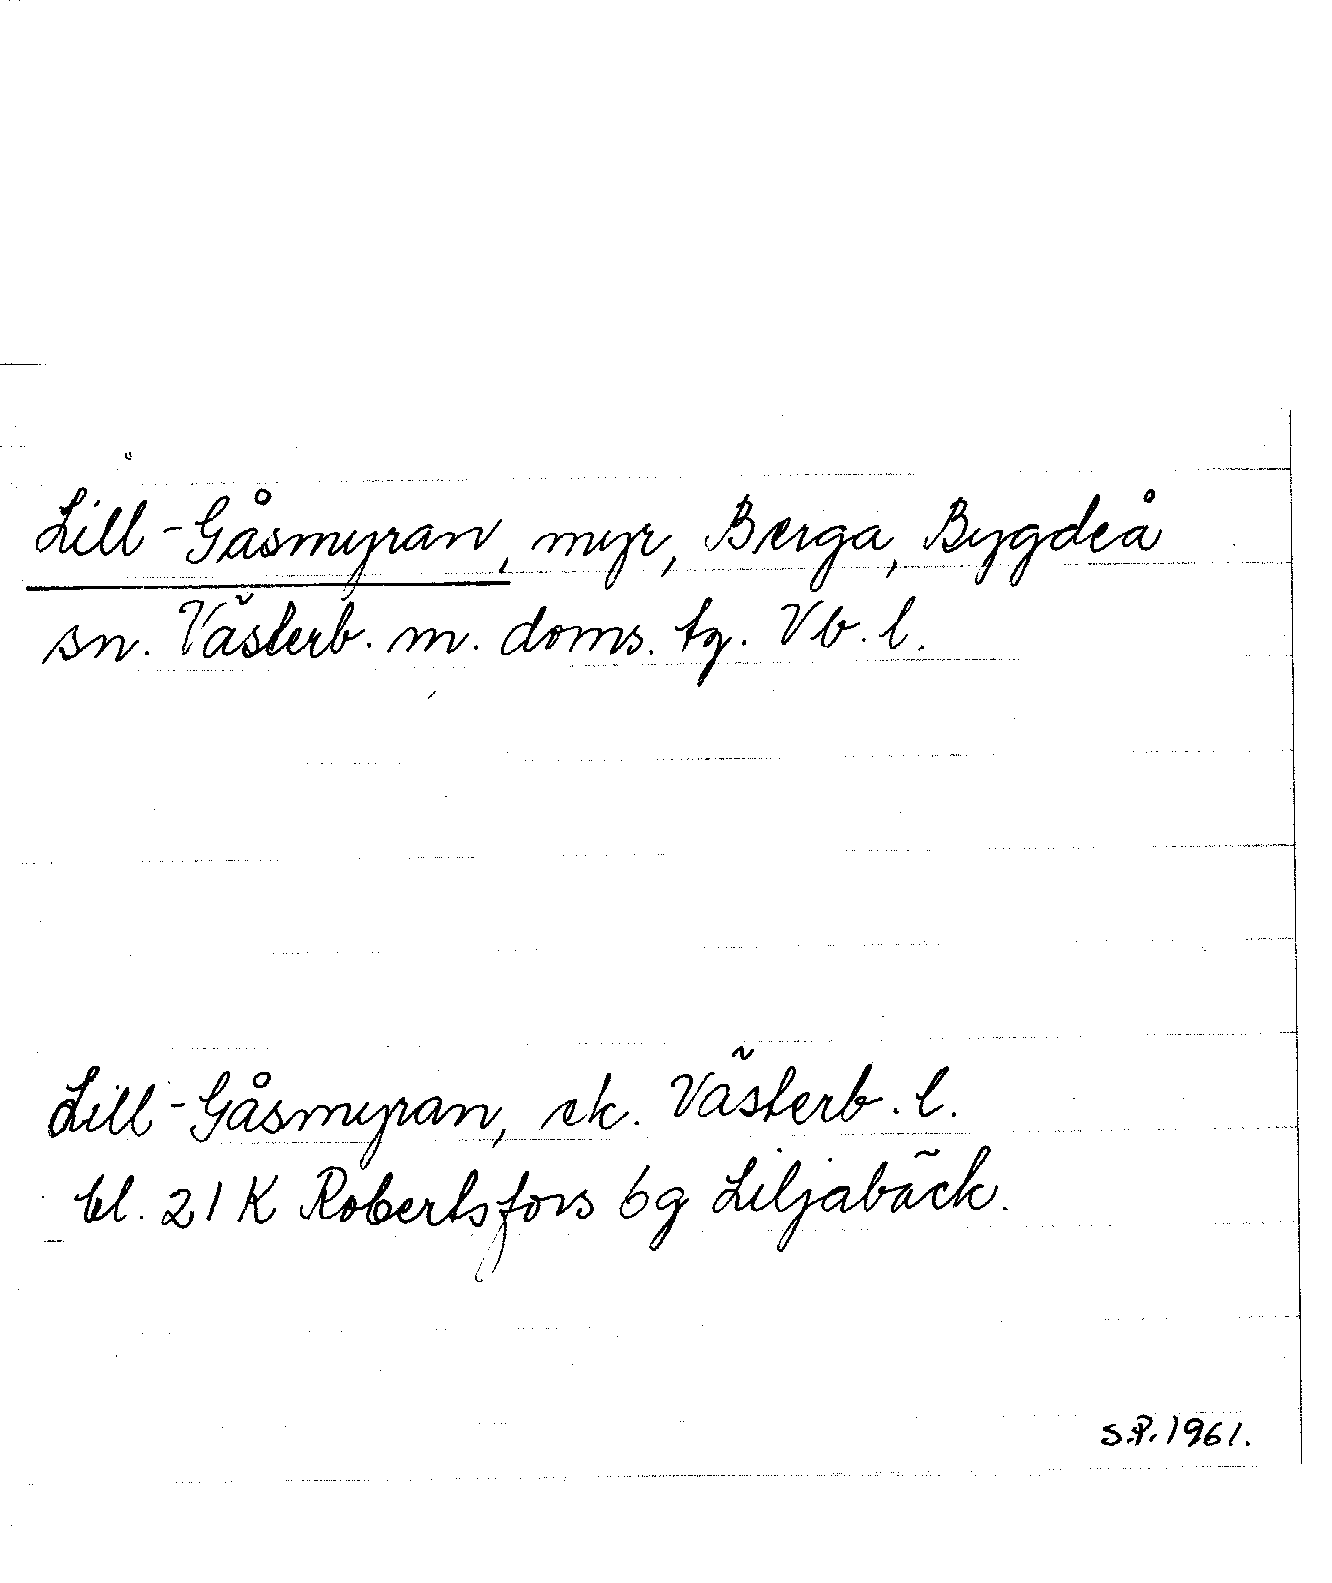 Lill-Gåsmyran, myr, Berga, Bygdeå
sn. Västerb. m. doms. tg. Vb. l.
Lill-Gåsmyran, ek. Västerb. l.
bl. 21 K Robertsfors 6g Liljabäck.
S.P. 1961.